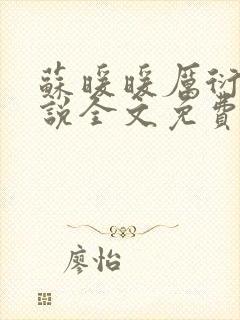 蘇暖暖厲衍
說全文免費
廖怡